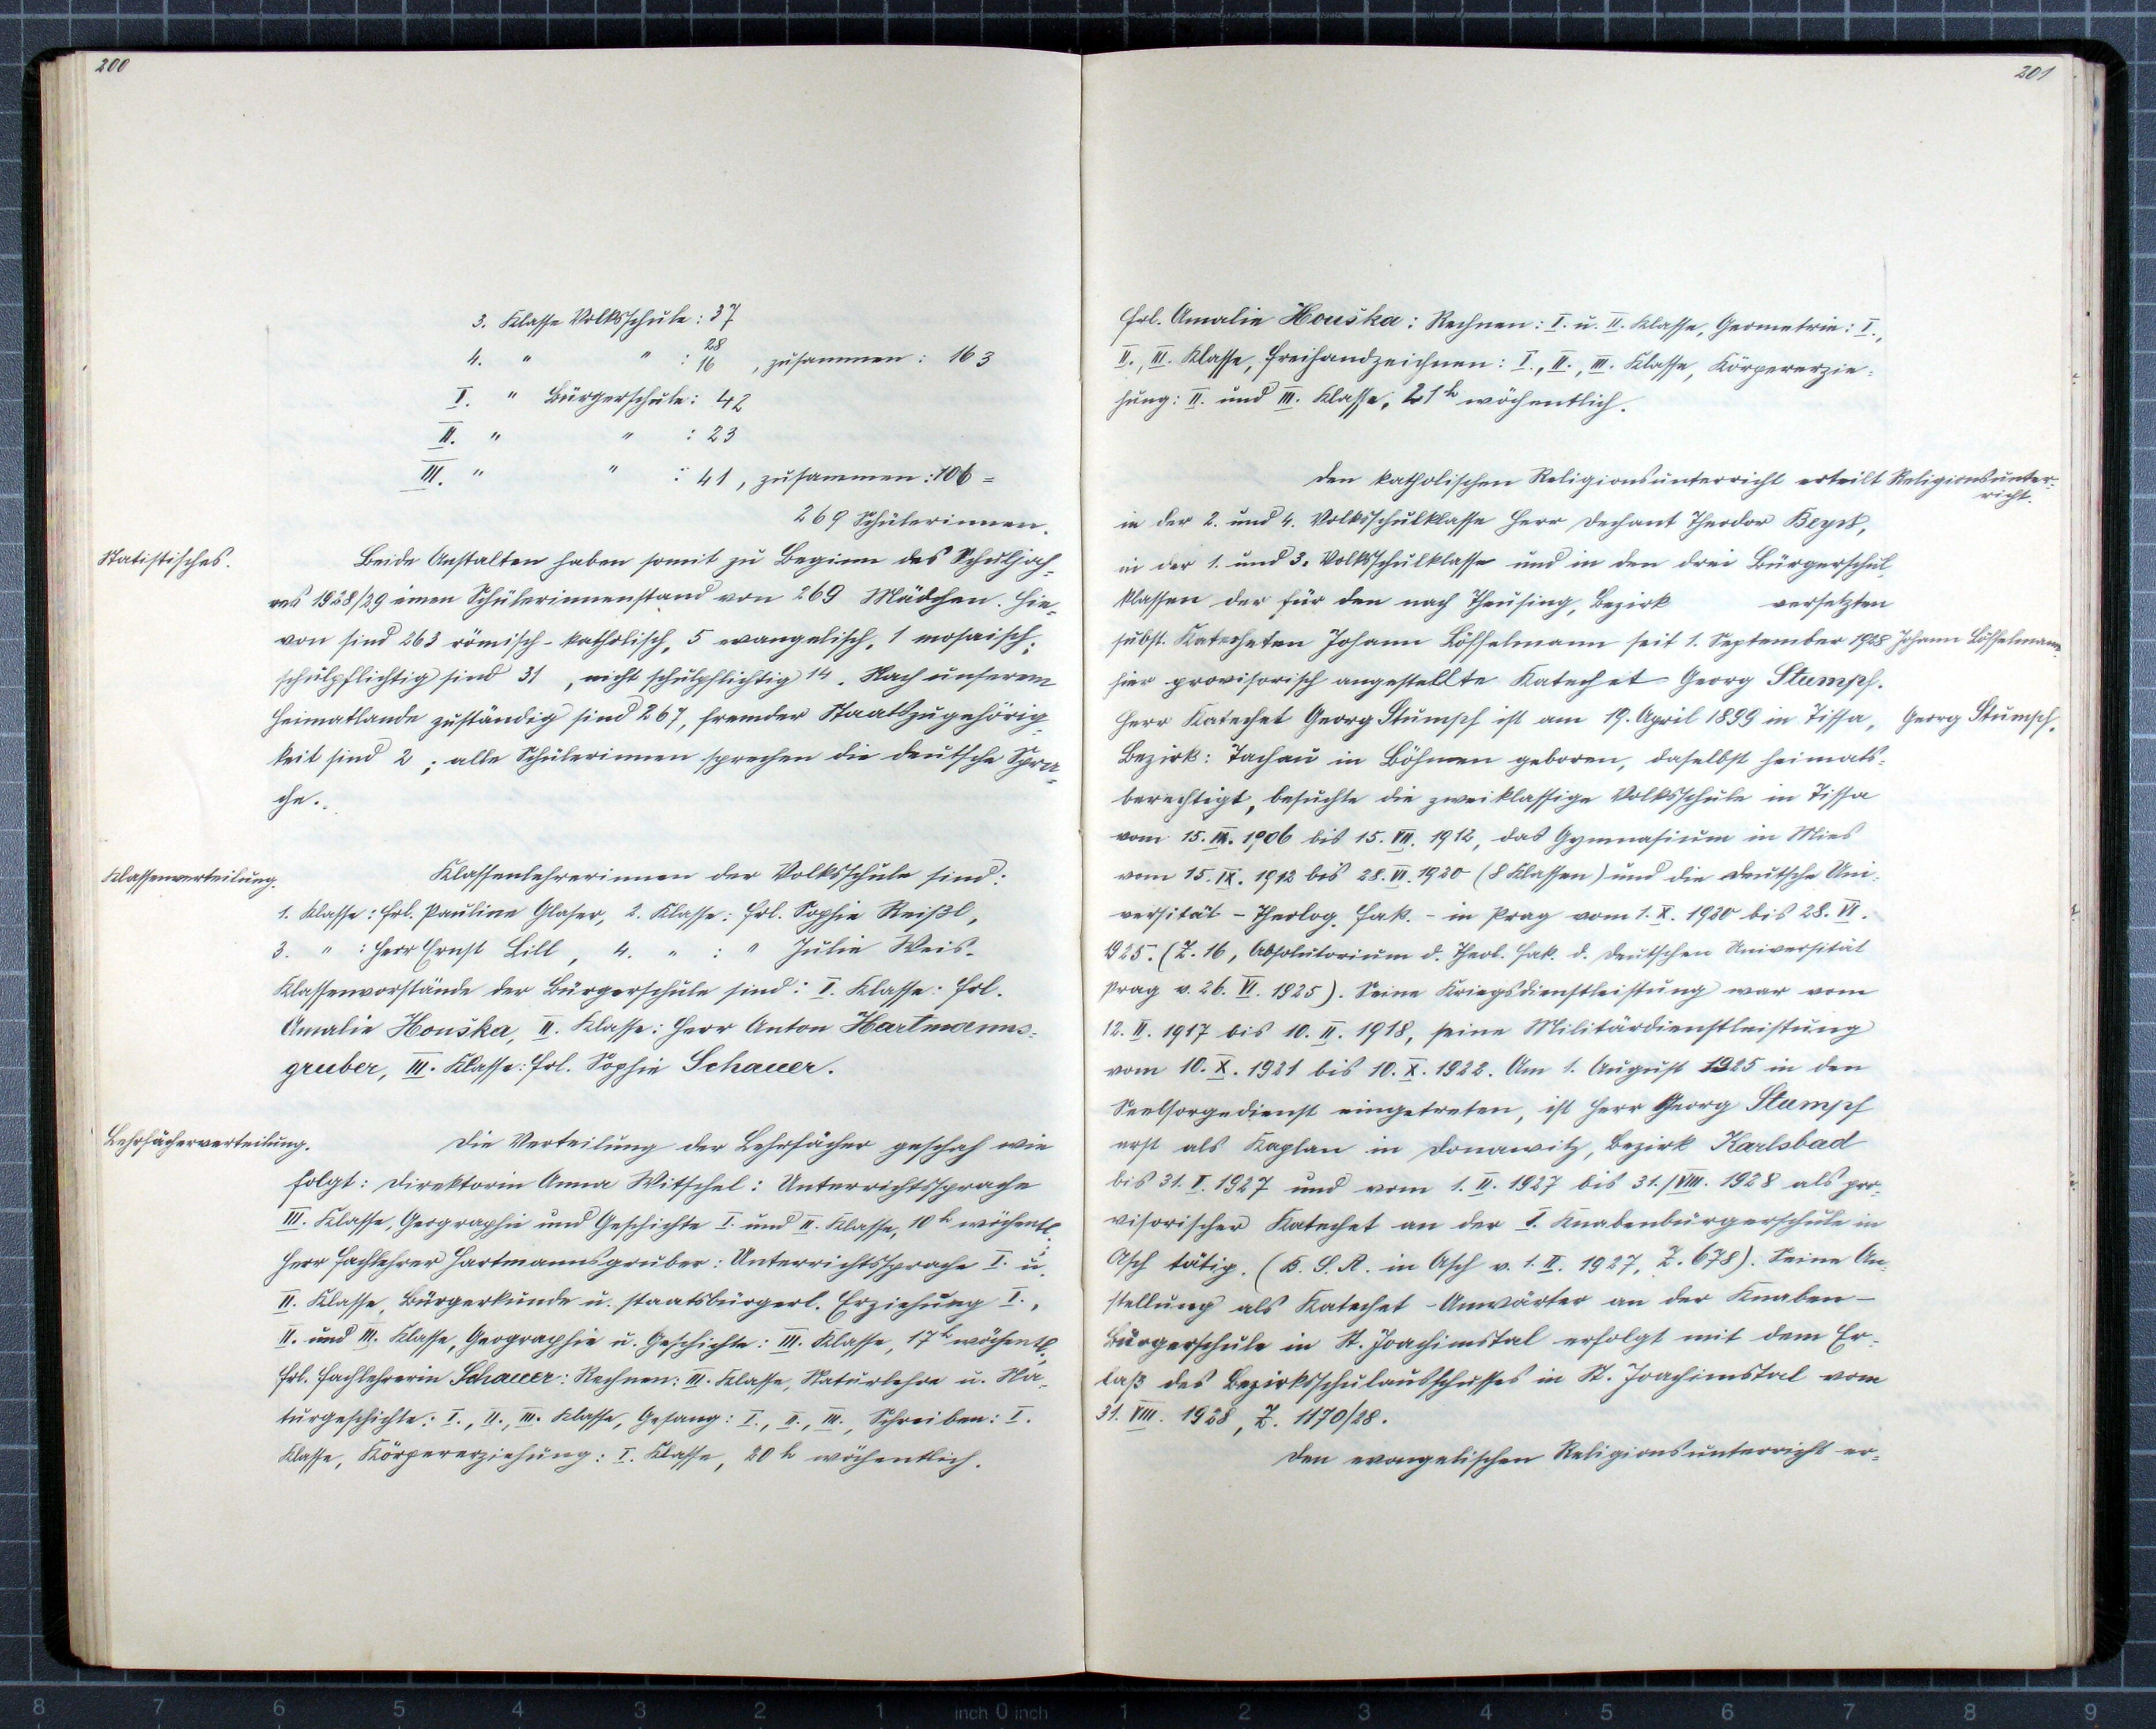 200
3. Klasse Volksschule: 37
28
4. " " : 16 , zusammen: 163
I. " Bürgerschule: 42
II. " " : 23
III. " " : 41, zusammen: 106 =
269 Schülerinnen.
Statistisches.
Beide Anstalten haben somit zu Beginn des Schuljah-
res 1928/29 einen Schülerinnenstand von 269 Mädchen. Hie-
von sind 263 römisch-katholisch, 5 evangelisch, 1 mosaisch;
schulpflichtig sind 31 , nicht schulpflichtig 14. Nach unserem
Heimatlande zuständig sind 267, fremder Staatszugehörig-
keit sind 2 ; alle Schülerinnen sprechen die deutsche Spra-
che.
Klassenverteilung.
Klassenlehrerinnen der Volksschule sind:
1. Klasse: Frl. Pauline Glaser, 2. Klasse: Frl. Sophie Reißl,
3. " : Herr Ernst Lill , 4. " : " Julie Weis.
Klassenvorstände der Bürgerschule sind: I. Klasse: Frl.
Amalie Houška, II. Klasse: Herr Anton Hartmanns-
gruber, III. Klasse: Frl. Sophie Schauer.
Lehrfächerverteilung.
Die Verteilung der Lehrfächer geschah wie
folgt: Direktorin Anna Witschel: Unterrichtssprache
III. Klasse, Geographie und Geschichte I. und II. Klasse, 10 h wöchentl.;
Herr Fachlehrer Hartmannsgruber: Unterrichtssprache I. u.
II. Klasse, Bürgerkunde u. staatsbürgerl. Erziehung I.,
II. und III. Klasse, Geographie u. Geschichte: III. Klasse, 17 h wöchentl.,
Frl. Fachlehrerin Schauer: Rechnen: III. Klasse, Naturlehre u. Na-
turgeschichte: I., II., III. Klasse, Gesang: I., II., III., Schreiben: I.
Klasse, Körpererziehung: I. Klasse, 20 h wöchentlich.
201
Frl. Amalie Houška: Rechnen: I. u. II. Klasse, Geometrie: I.,
II., III. Klasse, Freihandzeichnen: I., II., III. Klasse, Körpererzie-
hung: II. und III. Klasse, 21 h wöchentlich.
Den katholischen Religionsunterricht erteilt
Religionsunter-
richt.
in der 2. und 4. Volksschulklasse Herr Dechant Theodor
in der 1. und 3. Volksschulklasse und in den drei Bürgerschul-
klassen der für den nach Theusing, Bezirk versetzten
subst. Katecheten Johann Löffelmann seit 1. September 1928
Johann Löffelmann.
hier provisorisch angestellte Katechet Georg Stumpf.
Herr Katechet Georg Stumpf ist am 19. April 1899 in Tissa,
Georg Stumpf.
Bezirk: Tachau in Böhmen geboren, daselbst heimats-
berechtigt, besuchte die zweiklassige Volksschule in Tissa
vom 15. IX. 1906 bis 15. VII. 1912, das Gymnasium in Mies
vom 15. IX. 1912 bis 28. VI. 1920 (8 Klassen) und die deutsche Uni-
versität - Theolog. Fak. - in Prag vom 1. X. 1920 bis 28. VI.
1925. (Z. 16, Absolutorium d. Theol. Fak. d. Deutschen Universität
Prag v. 26. VI. 1925). Seine Kriegsdienstleistung war vom
12. II. 1917 bis 10. II. 1918, seine Militärdienstleistung
vom 10. X. 1921 bis 10. X. 1922. Am 1. August 1925 in den
Seelsorgedienst eingetreten, ist Herr Georg Stumpf
erst als Kaplan in Donawitz, Bezirk Karlsbad
bis 31. I. 1927 und vom 1. II. 1927 bis 31./VIII. 1928 als pro-
visorischer Katechet an der I. Knabenbürgerschule in
Asch tätig. (B. S. A. in Asch v. 1. II. 1927, Z. 678). Seine An-
stellung als Katechet-Anwärter an der Knaben-
Bürgerschule in St. Joachimstal erfolgt mit dem Er-
laß des Bezirksschulausschusses in St. Joachimstal vom
31. VIII. 1928, Z. 1170/28.
Den evangelischen Religionsunterricht er-
8 7 6 5 4 3 2 1 inch 0 inch 1 2 3 4 5 6 7 8 9